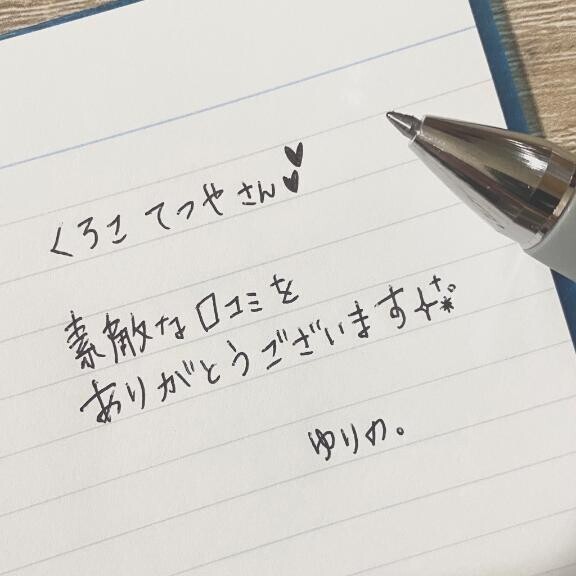 くろこ てつや さん♥♥
素敵な口コミを
ありがとうございます
ゆりの。